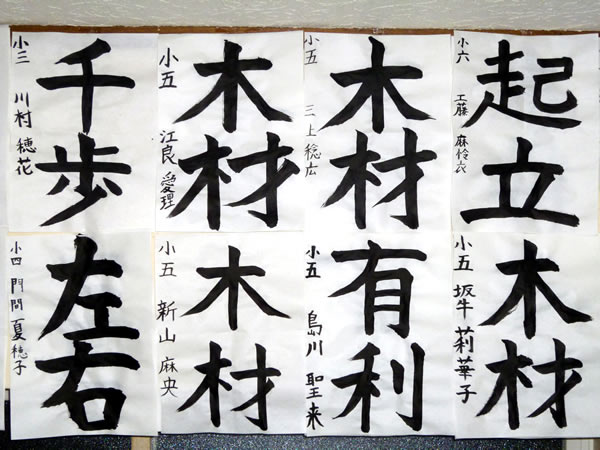 起立
小六 工藤 麻怜衣
木材
小五 三上 稔広
木材
小五 江良 愛理
千歩
小三 川村 穂花
木材
小五 坂牛 莉華子
有利
小五 島川 聖来
木材
小五 新山 麻央
左右
小四 門間 夏穂子